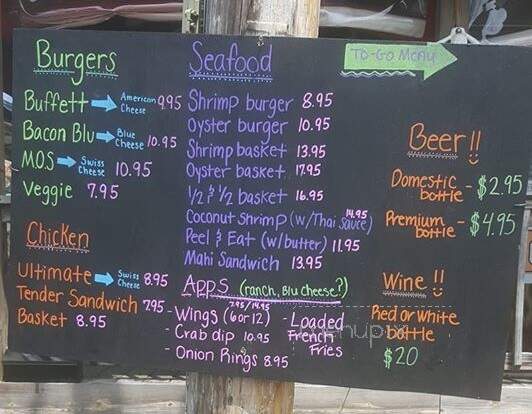 TO-GO Menu
Burgers
Buffett American Cheese 9.95
Bacon Blu Blue Cheese 10.95
M.O.S Swiss Cheese 10.95
Veggie 7.95
Chicken
Ultimate Swiss Cheese 8.95
Tender Sandwich 7.95
Basket 8.95
Seafood
Shrimp burger 8.95
Oyster burger 10.95
Shrimp basket 13.95
Oyster basket 17.95
1/2 & 1/2 basket 16.95
Coconut Shrimp (w/Thai Sauce) 14.95
Peel & Eat (w/butter) 11.95
Mahi Sandwich 13.95
Apps (ranch, Blu cheese?)
7.95/14.95
- Wings (6 or 12)
- Crab dip 10.95
- Onion Rings 8.95
- Loaded
French
Fries
Beer!!
Domestic bottle - $2.95
Premium bottle - $4.95
Wine!!
Red or white
bottle
$20